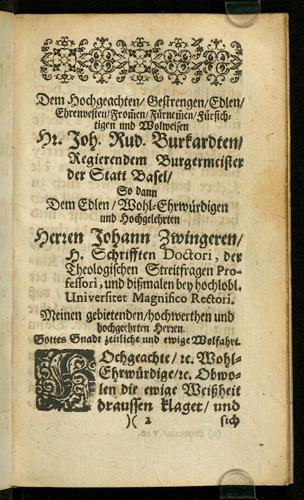 Dem Hochgeachten/ Gestrengen/ Edlen/
Ehrenvesten/ From̃en/ Fürnem̃en/ Fürsich-
tigen und Wolweisen
Hr. Joh. Rud. Burkardten/
Regierendem Burgermeister
der Statt Basel/
So dann
Dem Edlen/ Wohl-Ehrwürdigen
und Hochgelehrten
Herren Johann Zwingeren/
H. Schrifften Doctori, der
Theologischen Streitfragen Pro-
fessori, und dißmalen bey hochlobl.
Universitet Magnifico Rectori.
Meinen gebietenden/ hochwerthen und
hochgeehrten Herren.
Gottes Gnadt zeitliche und ewige Wolfahrt.
HOchgeachte/ ꝛc. Wohl-
Ehrwürdige/ ꝛc. Obwo-
len die ewige Weißheit
draussen klaget/ und
)( 2 sich